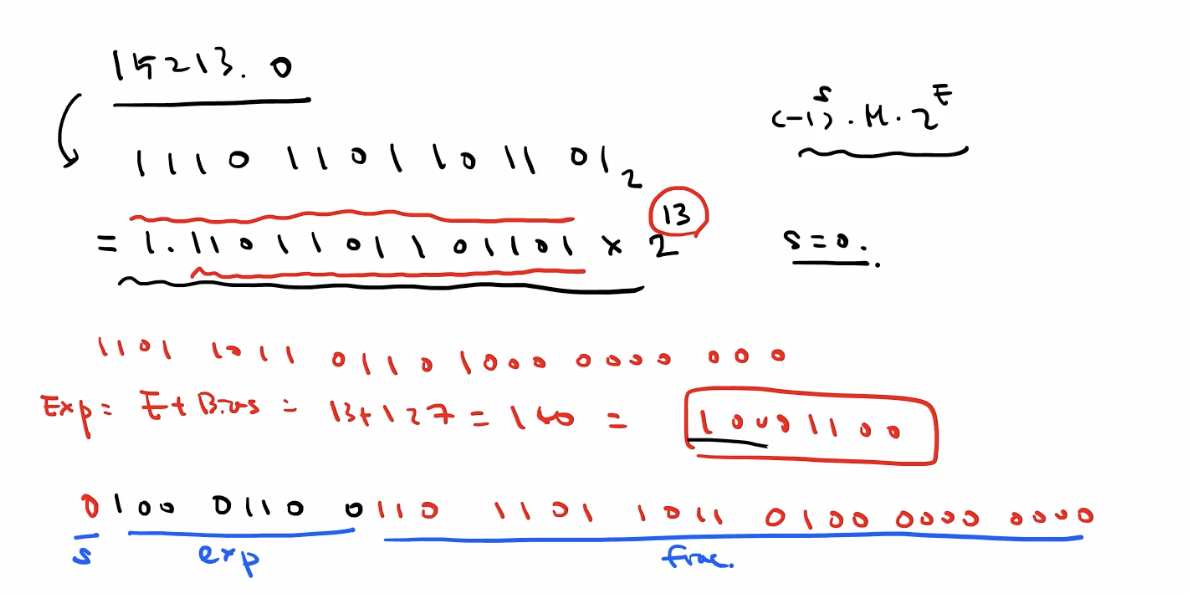 15213.0
(-1)^S . M . 2^E
1110 1101 1011 01₂
= 1.1101101101101 × 2^13
S = 0.
1101 1011 0110 1000 0000 000
Exp = E + Bias = 13+127 = 140 = 10001100
0100 0110 0110 1101 1011 0100 0000 0000
s exp frac.